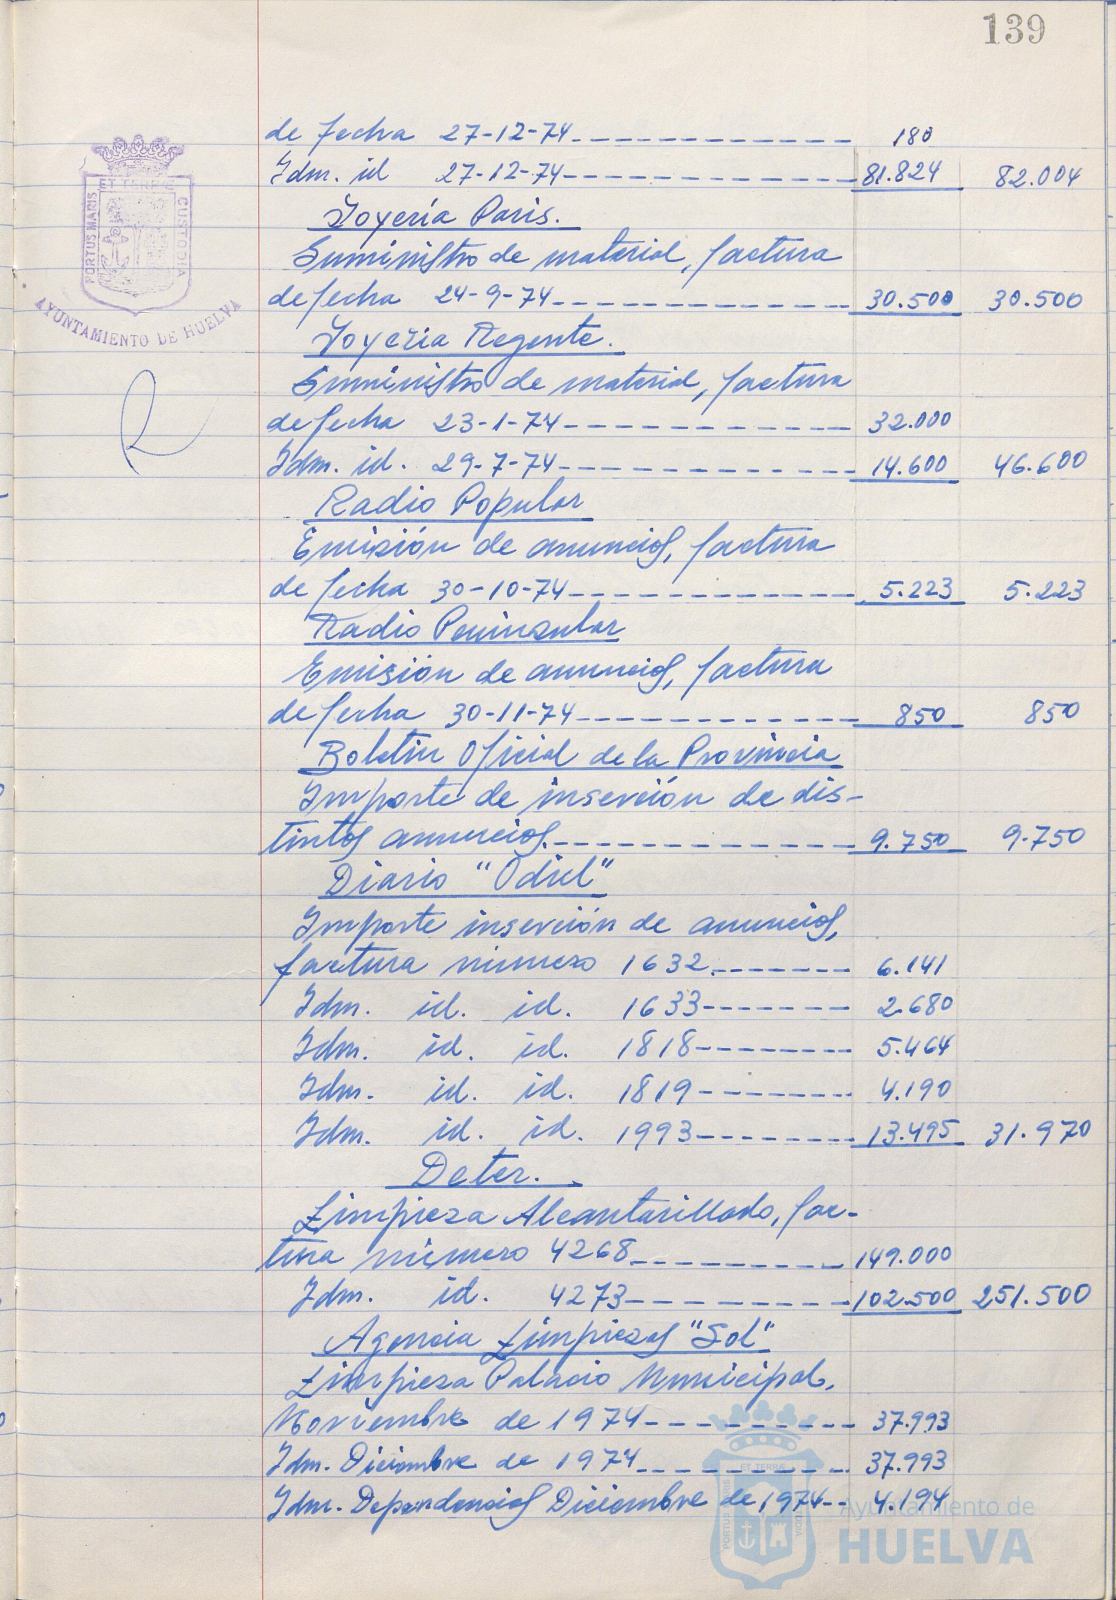 139
de fecha 27-12-74------------ 180
Idm. id 27-12-74------------- 81.824 82.004
Joyería Paris.
Suministro de material, factura
de fecha 24-9-74------------- 30.500 30.500
Joyeria Regente.
Suministro de material, factura
de fecha 23-1-74------------- 32.000
Idm. id. 29-7-74------------- 14.600 46.600
Radio Popular
Emisión de anuncios, factura
de fecha 30-10-74------------ 5.223 5.223
Radio Peninsular
Emisión de anuncios, factura
de fecha 30-11-74------------ 850 850
Boletin Oficial de la Provincia
Importe de inserción de dis-
tintos anuncios.------------- 9.750 9.750
Diario "Odiel"
Importe inserción de anuncios,
factura número 1632.------- 6.141
Idm. id. id. 1633------- 2.680
Idm. id. id. 1818-------- 5.464
Idm. id. id. 1819-------- 4.190
Idm. id. id. 1993-------- 13.495 31.970
Deter.
Limpieza Alcantarillado, fac-
tura número 4268---------- 149.000
Idm. id. 4273---------- 102.500 251.500
Agencia Limpiezas "Sol"
Limpieza Palacio Municipal,
Noviembre de 1974--------- 37.993
Idm. Diciembre de 1974---------- 37.993
Idm. Dependencias Diciembre de 1974-- 4.194
ET TERRÆ
PORTUS MARIS
CUSTODIA
AYUNTAMIENTO DE HUELVA
ET TERRÆ
Ayuntamiento de
HUELVA